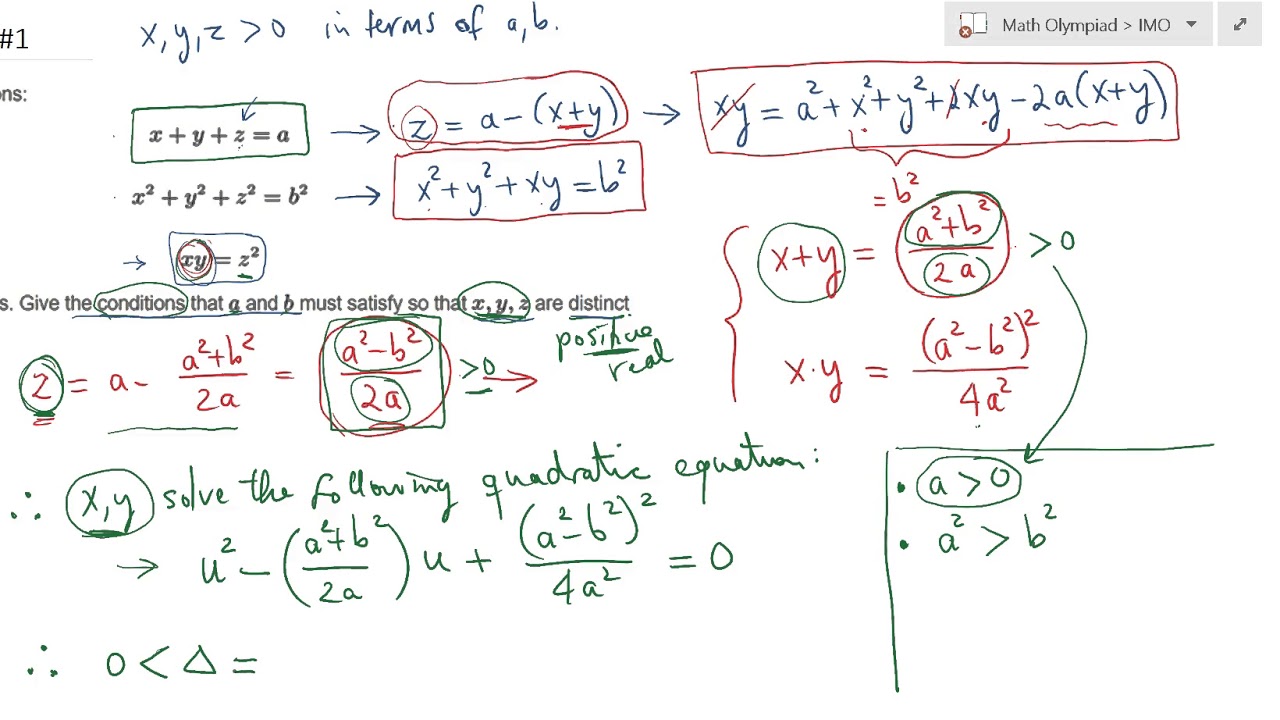 #1
x, y, z > 0 in terms of a, b.
Math Olympiad > IMO
ns:
x + y + z = a → z = a - (x+y) → xy = a² + x² + y² + 2xy - 2a(x+y)
x² + y² + z² = b² → x² + y² + xy = b²
= b²
→ xy = z²
x+y = (a²+b²)/(2a) > 0
s. Give the conditions that a and b must satisfy so that x, y, z are distinct
positive
real
z = a - (a²+b²)/(2a) = (a²-b²)/(2a) > 0 →
x·y = (a²-b²)²/(4a²)
∴ x,y solve the following quadratic equation:
→ u² - ((a²+b²)/(2a)) u + (a²-b²)²/(4a²) = 0
∴ 0 < Δ =
• a > 0
• a² > b²